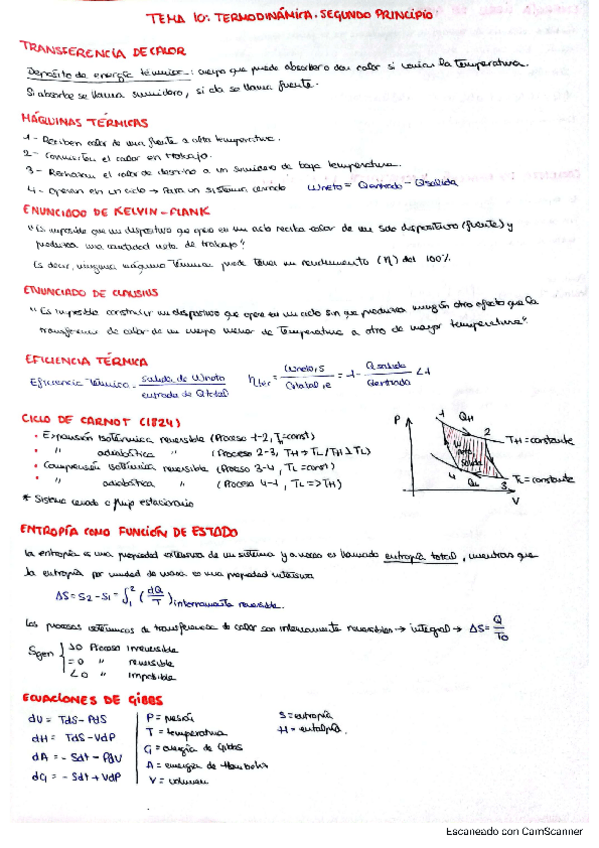 TEMA 10: TERMODINÁMICA. SEGUNDO PRINCIPIO
TRANSFERENCIA DE CALOR
Depósito de energía térmica: cuerpo que puede absorber o dar calor si variar la temperatura.
Si absorbe se llama sumidero, si da se llama fuente.
MÁQUINAS TÉRMICAS
1- Reciben calor de una fuente a alta temperatura.
2- Convierten el calor en trabajo.
3- Rechazan el calor de desecho a un sumidero de baja temperatura.
4- Operan en un ciclo → Para un sistema cerrado Wneto = Qentrada - Qsalida
ENUNCIADO DE KELVIN-PLANK
"Es imposible que un dispositivo que opera en un ciclo reciba calor de un solo dispositivo (fuente) y
produzca una cantidad neta de trabajo"
Es decir, ninguna máquina térmica puede tener un rendimiento (η) del 100%
ENUNCIADO DE CLAUSIUS
"Es imposible construir un dispositivo que opere en un ciclo sin que produzca ningún otro efecto que la
transferencia de calor de un cuerpo menor de temperatura a otro de mayor temperatura".
EFICIENCIA TÉRMICA
Eficiencia térmica = salida de Wneto / entrada de Qtotal ηter = Wneto,s / Qtotal,e = 1 - Qsalida / Qentrada < 1
CICLO DE CARNOT (1824)
• Expansión isotérmica reversible (Proceso 1-2, TH=const)
• " adiabática " (Proceso 2-3, TH → TL / TH ⊥ TL)
• Compresión isotérmica reversible (Proceso 3-4, TL = const)
• " adiabática " (Proceso 4-1, TL => TH)
* Sistema cerrado o flujo estacionario
P
1 QH
2
TH = constante
W neto salida
4 QL 3
TL = constante
V
ENTROPÍA COMO FUNCIÓN DE ESTADO
la entropía es una propiedad extensiva de un sistema y a veces es llamado entropía total, mientras que
la entropía por unidad de masa es una propiedad intensiva
ΔS = S2 - S1 = ∫₁² (dQ / T) internamente reversible.
Los procesos isotérmicos de transferencia de calor son internamente reversibles → integral → ΔS = Q / T0
Sgen { >0 Proceso irreversible
=0 " reversible
<0 " imposible
ECUACIONES DE GIBBS
dU = TdS - PdS
dH = TdS - VdP
dA = - Sdt - PdV
dG = - Sdt + VdP
P = presión
T = temperatura
G = energía de Gibbs
A = energía de Hemboltz
V = volumen
S = entropía
H = entalpía.
Escaneado con CamScanner